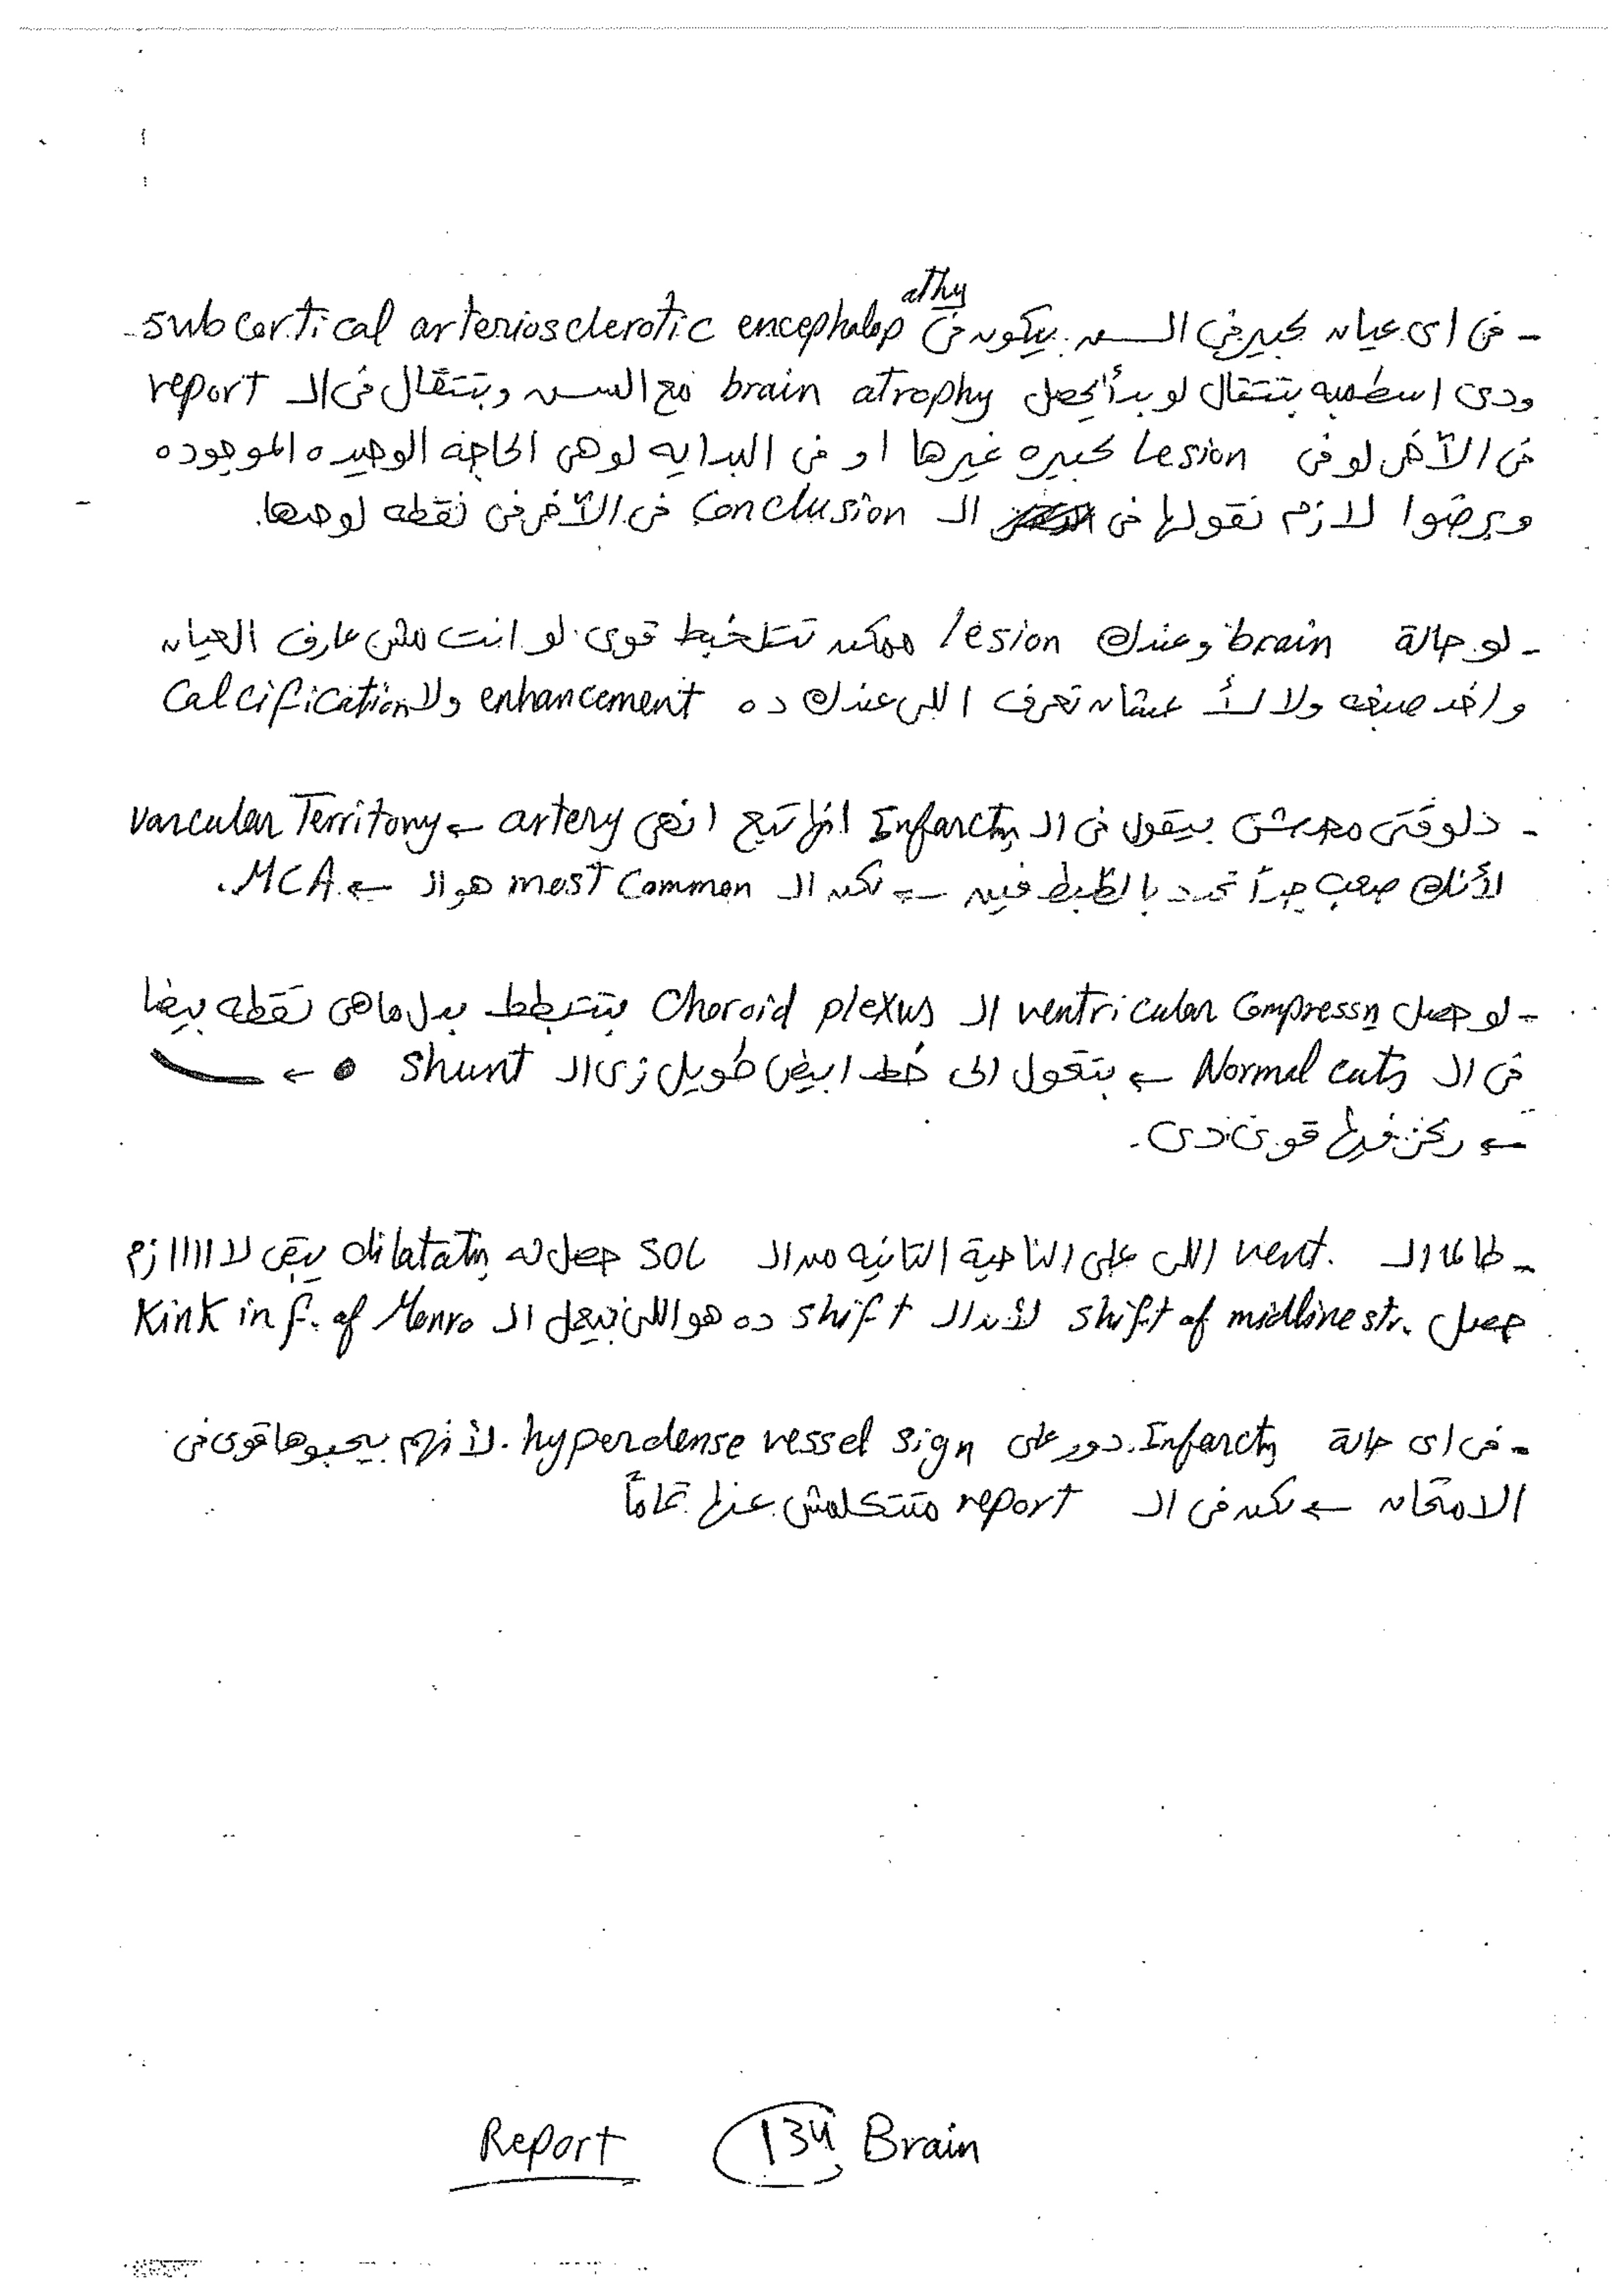 - فى اى عيان كبير فى السن بيكون فى subcortical arteriosclerotic encephalopathy
ودى اسطمبه بتتقال لو بدأ يحصل brain atrophy مع السن وبتتقال فى الـ report
فى الآخر لو فى Lesion كبيره غيرها او فى البدايه لو هى الحاجه الوحيده الموجوده
وبرضوا لازم نقولها فى الـ Conclusion فى الآخر فى نقطه لوحدها.
- لو حالة brain وعندك lesion ممكن تتلخبط قوى لو انت مش عارف العيان
واخد صبغه ولا لأ عشان تعرف اللى عندك ده enhancement ولا Calcification
- دلوقتى محدش بيقول فى الـ Infarctn انها تبع انهى artery ← varcular Territory
لأنك صعب جداً تحدد بالظبط فيه ← لكن الـ most Common هو الـ ← MCA.
- لو حصل ventricular Compressn الـ Choroid plexus بتتبطط بدل ماهى نقطه بيضا
فى الـ Normal cuts ← بتتحول الى خط ابيض طويل زى الـ Shunt ←
← ركز فيها قوى دى.
- طالما الـ vent. اللى على الناحية التانيه من الـ SOL حصل له dilatatn يبقى لااااازم
حصل shift of midline str. لأن الـ shift ده هو اللى بيعمل الـ Kink in f. of Monro
- فى اى حالة Infarctn دور على hyperdense vessel sign. لأنهم بيحبوها قوى فى
الامتحان ← لكن فى الـ report متتكلمش عنها تماماً
Report 134 Brain